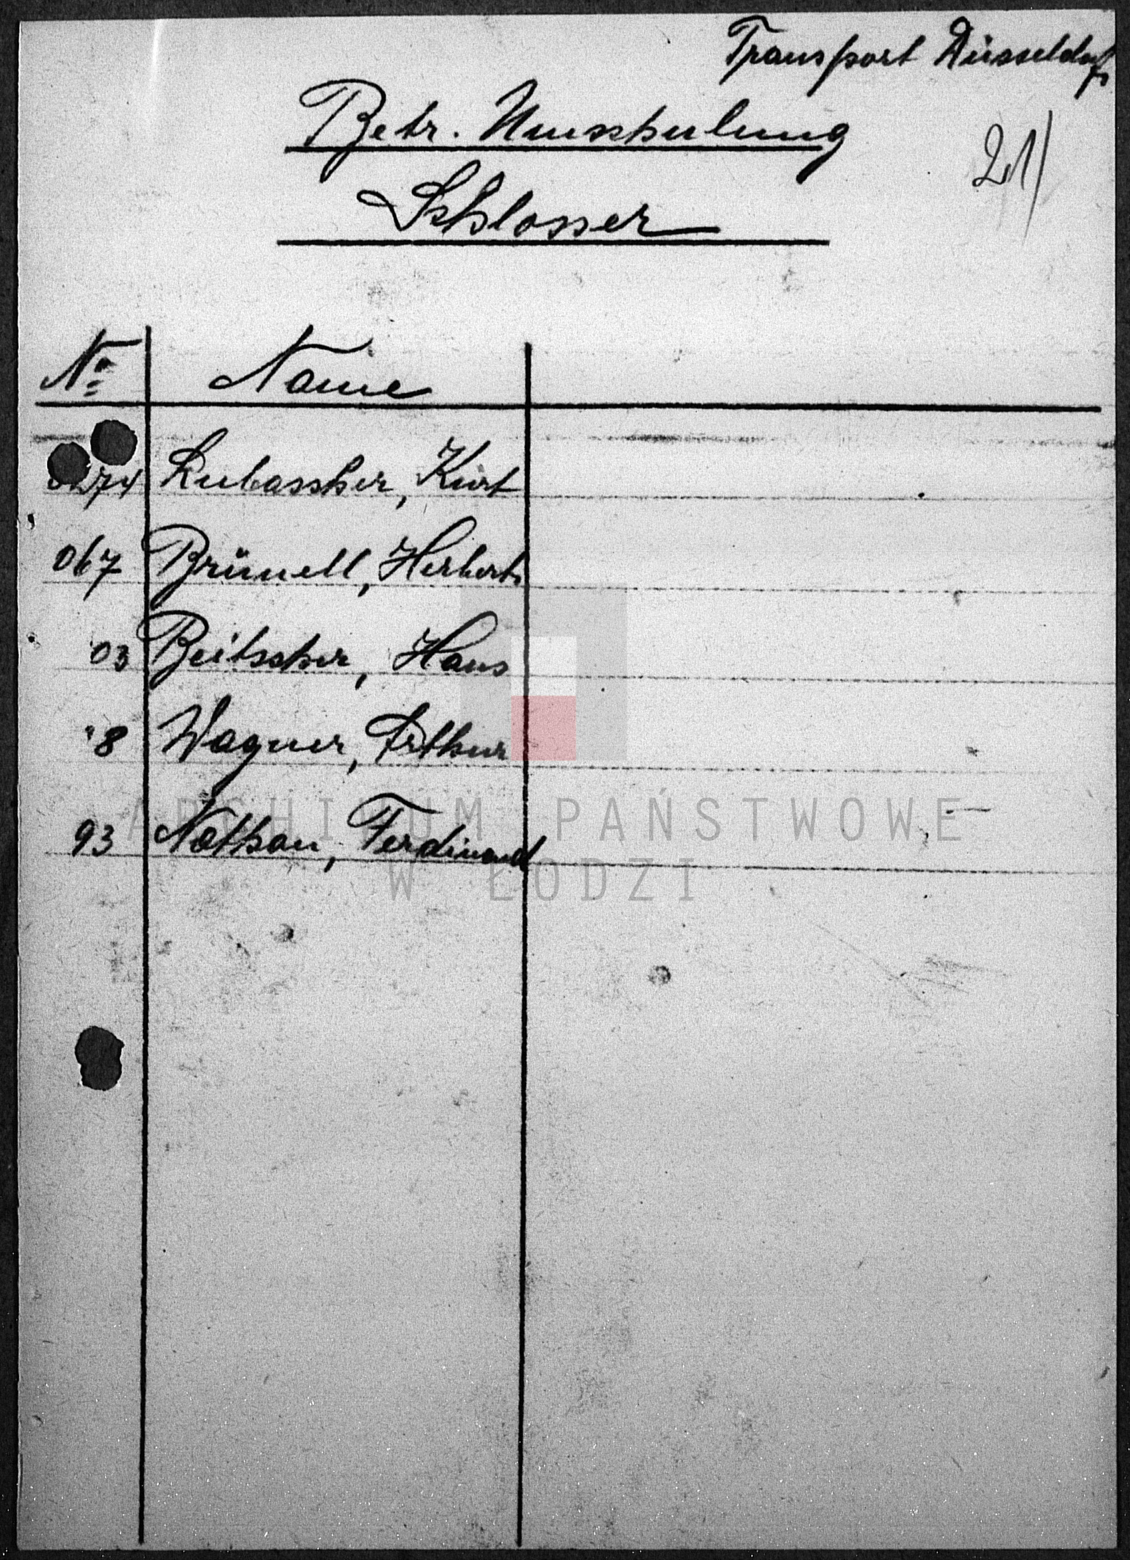 Transport Düsseldorf
Betr. Umschulung
21)
Schlosser
No Name
0274 Lubascher, Kurt
067 Brünell, Herbert
03 Beitscher, Hans
8 Wagner, Arthur
93 Nathan, Ferdinand
ARCHIWUM PAŃSTWOWE
W ŁODZI